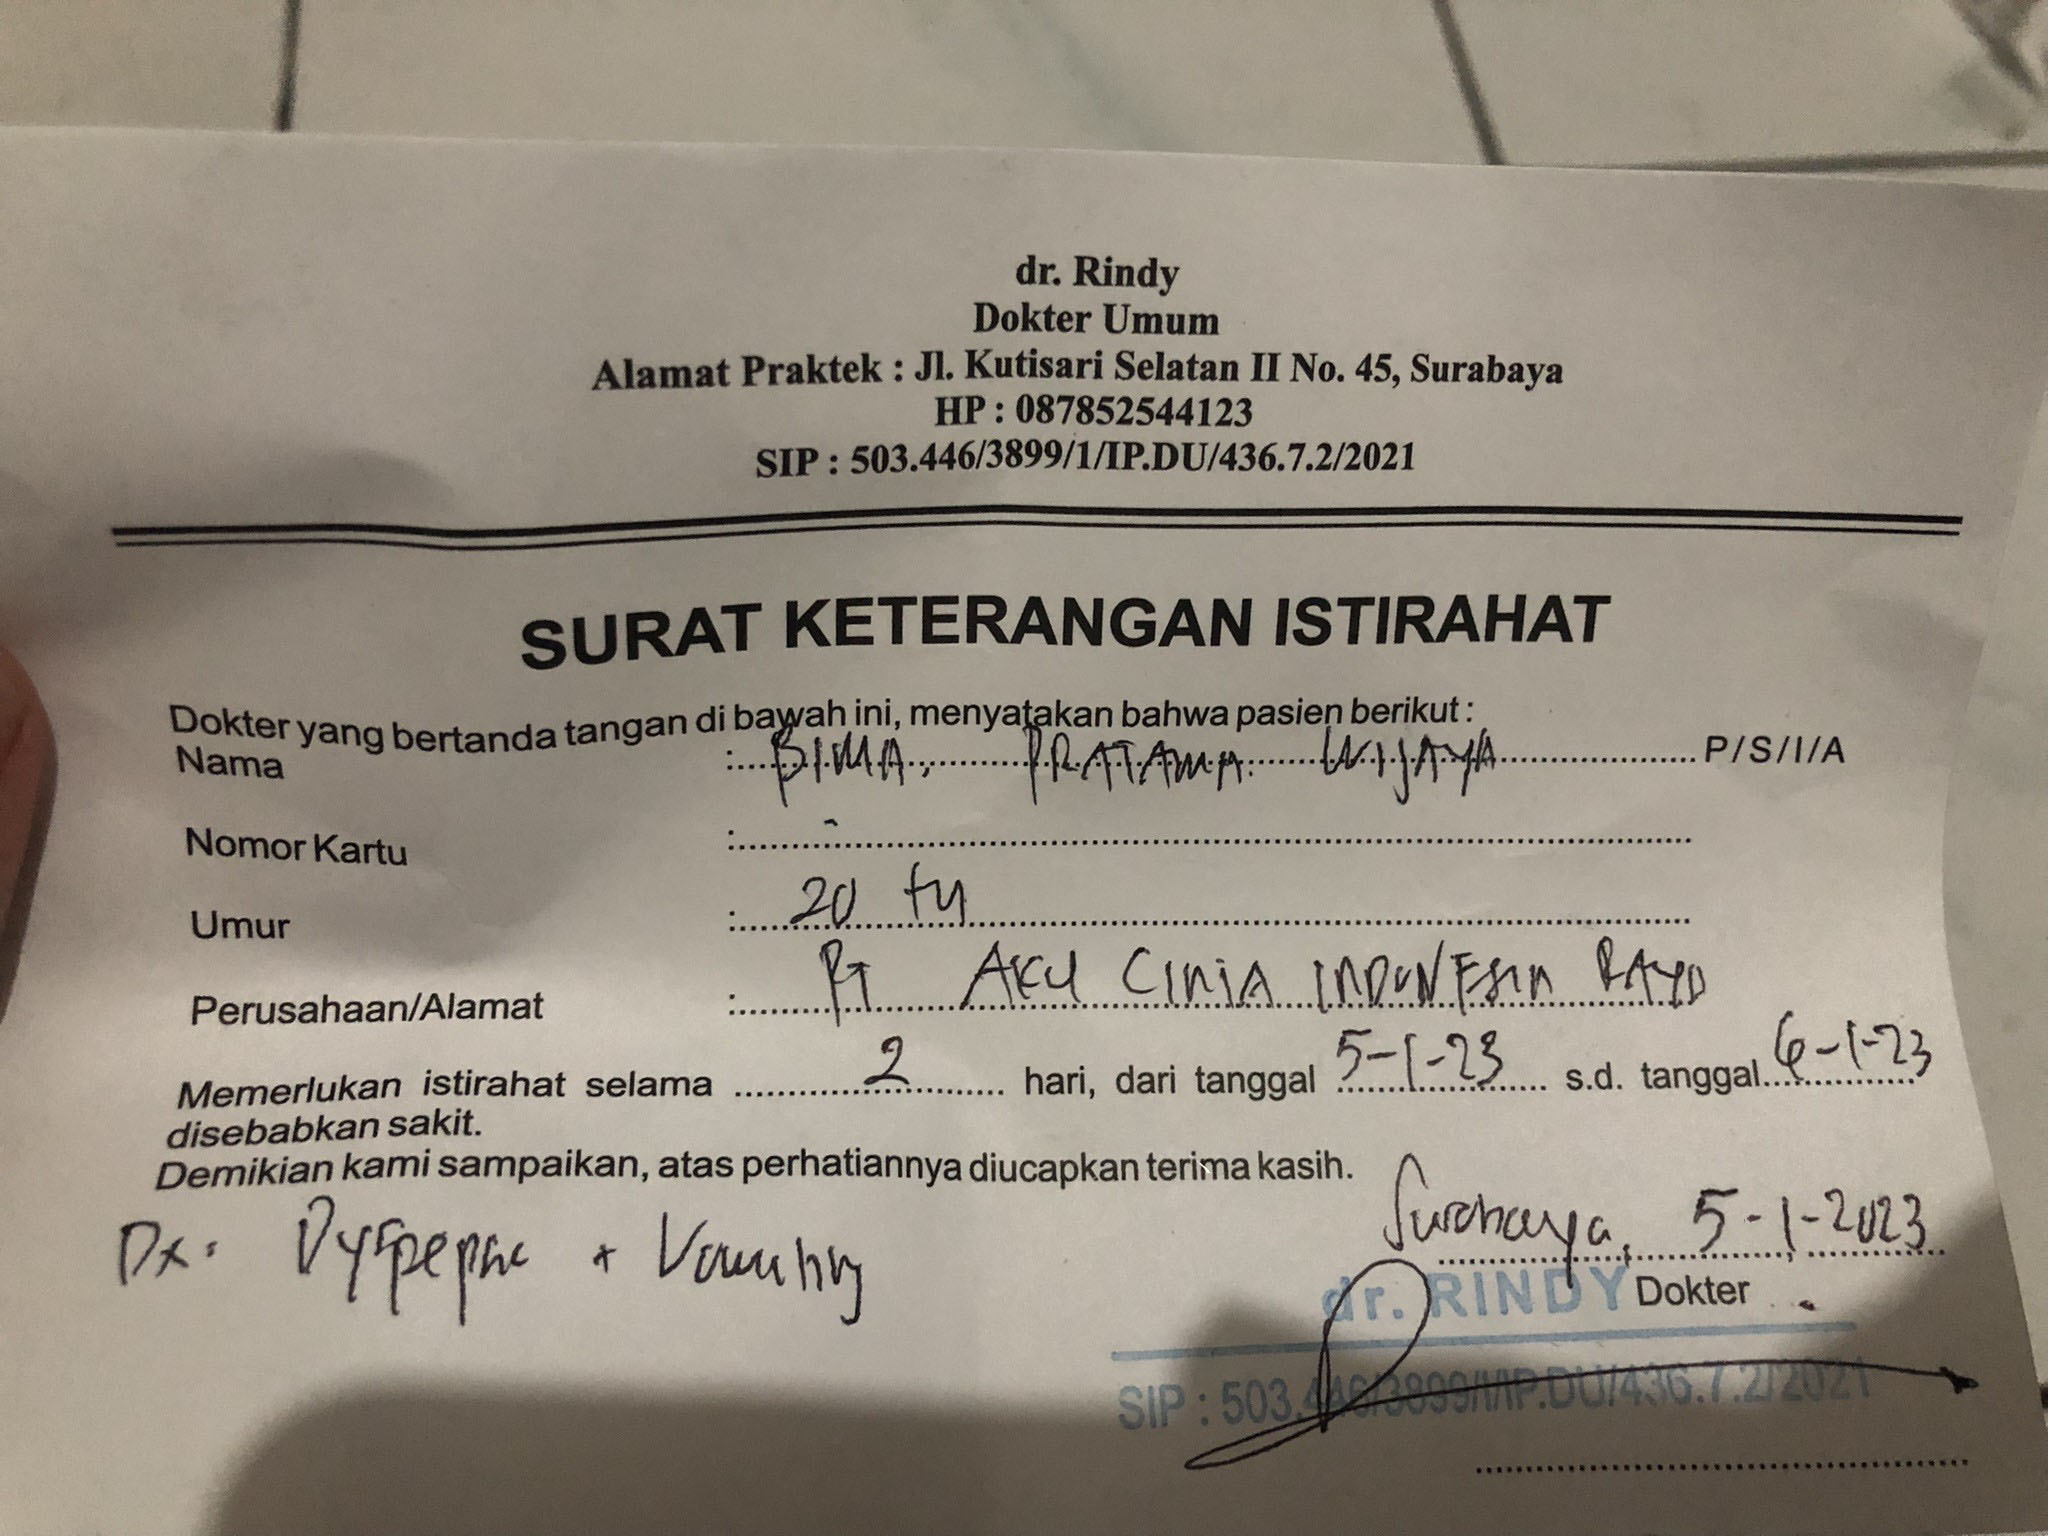 dr. Rindy
Dokter Umum
Alamat Praktek : Jl. Kutisari Selatan II No. 45, Surabaya
HP : 087852544123
SIP : 503.446/3899/1/IP.DU/436.7.2/2021
SURAT KETERANGAN ISTIRAHAT
Dokter yang bertanda tangan di bawah ini, menyatakan bahwa pasien berikut :
Nama : BIMA PRATAMA WIJAYA P/S/I/A
Nomor Kartu : -
Umur : 20 th
Perusahaan/Alamat : PT AKU CINTA INDONESIA RAYA
Memerlukan istirahat selama 2 hari, dari tanggal 5-1-23 s.d. tanggal 6-1-23
disebabkan sakit.
Demikian kami sampaikan, atas perhatiannya diucapkan terima kasih.
Surabaya, 5-1-2023
Dx: Dyspepsia + Vomiting
dr. RINDY Dokter
SIP : 503.446/3899/I/IP.DU/436.7.2/2021